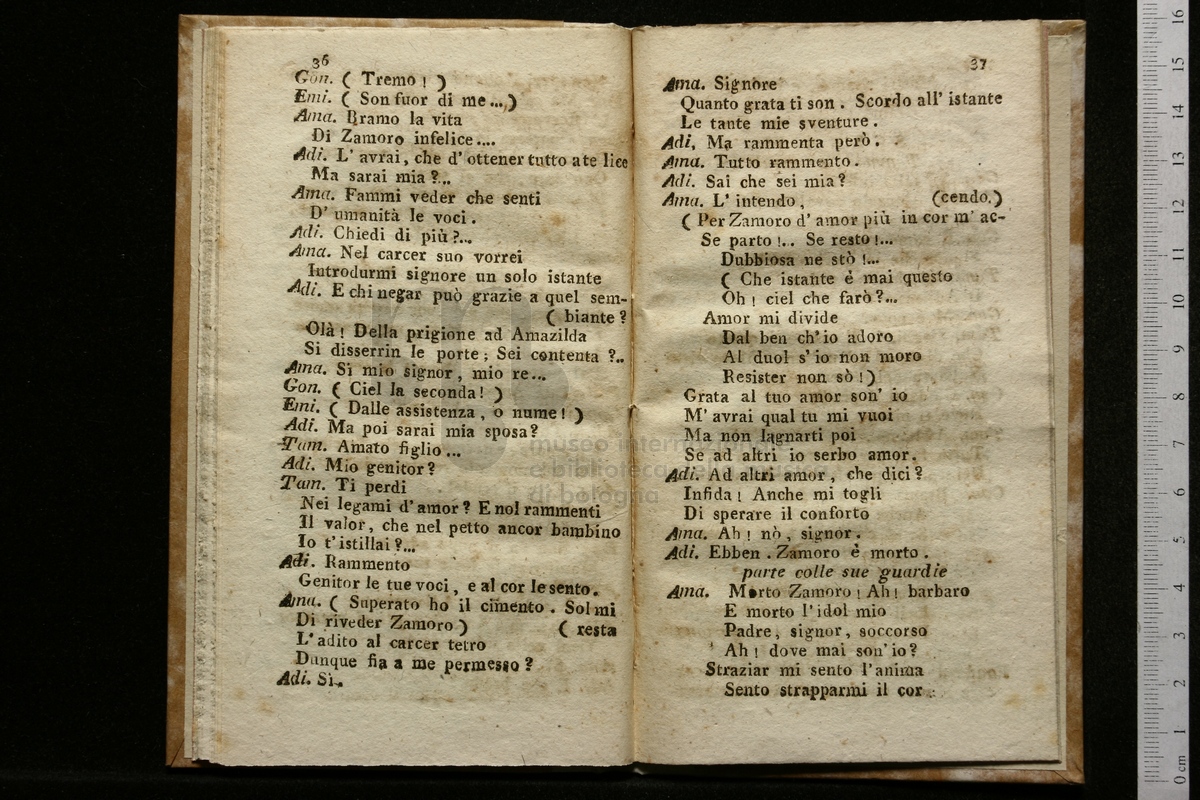 36
Gon. ( Tremo ! )
Emi. ( Son fuor di me ... )
Ama. Bramo la vita
Di Zamoro infelice ....
Adi. L' avrai, che d' ottener tutto a te lice
Ma sarai mia ? ...
Ama. Fammi veder che senti
D' umanità le voci .
Adi. Chiedi di più ? ...
Ama. Nel carcer suo vorrei
Introdurmi signore un solo istante
Adi. E chi negar può grazie a quel sem-
( biante ?
Olà ! Della prigione ad Amazilda
Si disserrin le porte ; Sei contenta ? ..
Ama. Sì mio signor , mio re ...
Gon. ( Ciel la seconda ! )
Emi. ( Dalle assistenza , o nume ! )
Adi. Ma poi sarai mia sposa ?
Tam. Amato figlio ...
Adi. Mio genitor ?
Tam. Ti perdi
Nei legami d' amor ? E nol rammenti
Il valor , che nel petto ancor bambino
Io t' istillai ? ...
Adi. Rammento
Genitor le tue voci , e al cor le sento .
Ama. ( Superato ho il cimento . Sol mi
Di riveder Zamoro ) ( resta
L' adito al carcer tetro
Dunque fia a me permesso ?
Adi. Si ..
37
Ama. Signore
Quanto grata ti son . Scordo all' istante
Le tante mie sventure .
Adi. Ma rammenta però .
Ama. Tutto rammento .
Adi. Sai che sei mia ?
Ama. L' intendo , (cendo.)
( Per Zamoro d' amor più in cor m' ac-
Se parto ! .. Se resto ! ...
Dubbiosa ne stò ! ...
( Che istante è mai questo
Oh ! ciel che farò ? ...
Amor mi divide
Dal ben ch' io adoro
Al duol s' io non moro
Resister non sò ! )
Grata al tuo amor son' io
M' avrai qual tu mi vuoi
Ma non lagnarti poi
Se ad altri io serbo amor .
Adi. Ad altri amor , che dici ?
Infida ! Anche mi togli
Di sperare il conforto
Ama. Ah ! nò , signor .
Adi. Ebben . Zamoro è morto .
parte colle sue guardie
Ama. Morto Zamoro ! Ah ! barbaro
E morto l' idol mio
Padre , signor , soccorso
Ah ! dove mai son' io ?
Straziar mi sento l' anima
Sento strapparmi il cor .
museo internazionale
e biblioteca della musica
di bologna
0 cm 1 2 3 4 5 6 7 8 9 10 11 12 13 14 15 16